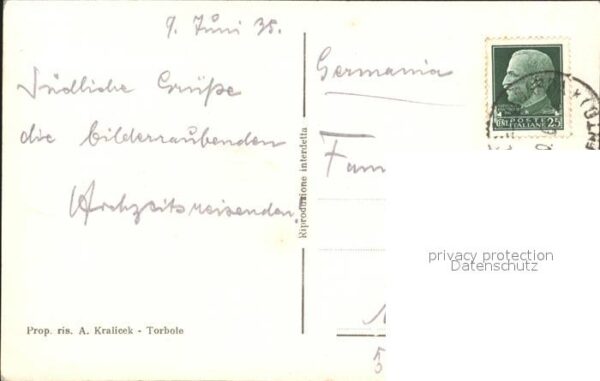 9. Juni 35.
Südliche Grüße
die bilderraubenden
Hochzeitsreisenden.
Prop. ris. A. Kralicek - Torbole
Riproduzione interdetta
Germania
POSTE
ITALIANE
25
Fam
privacy protection
Datenschutz